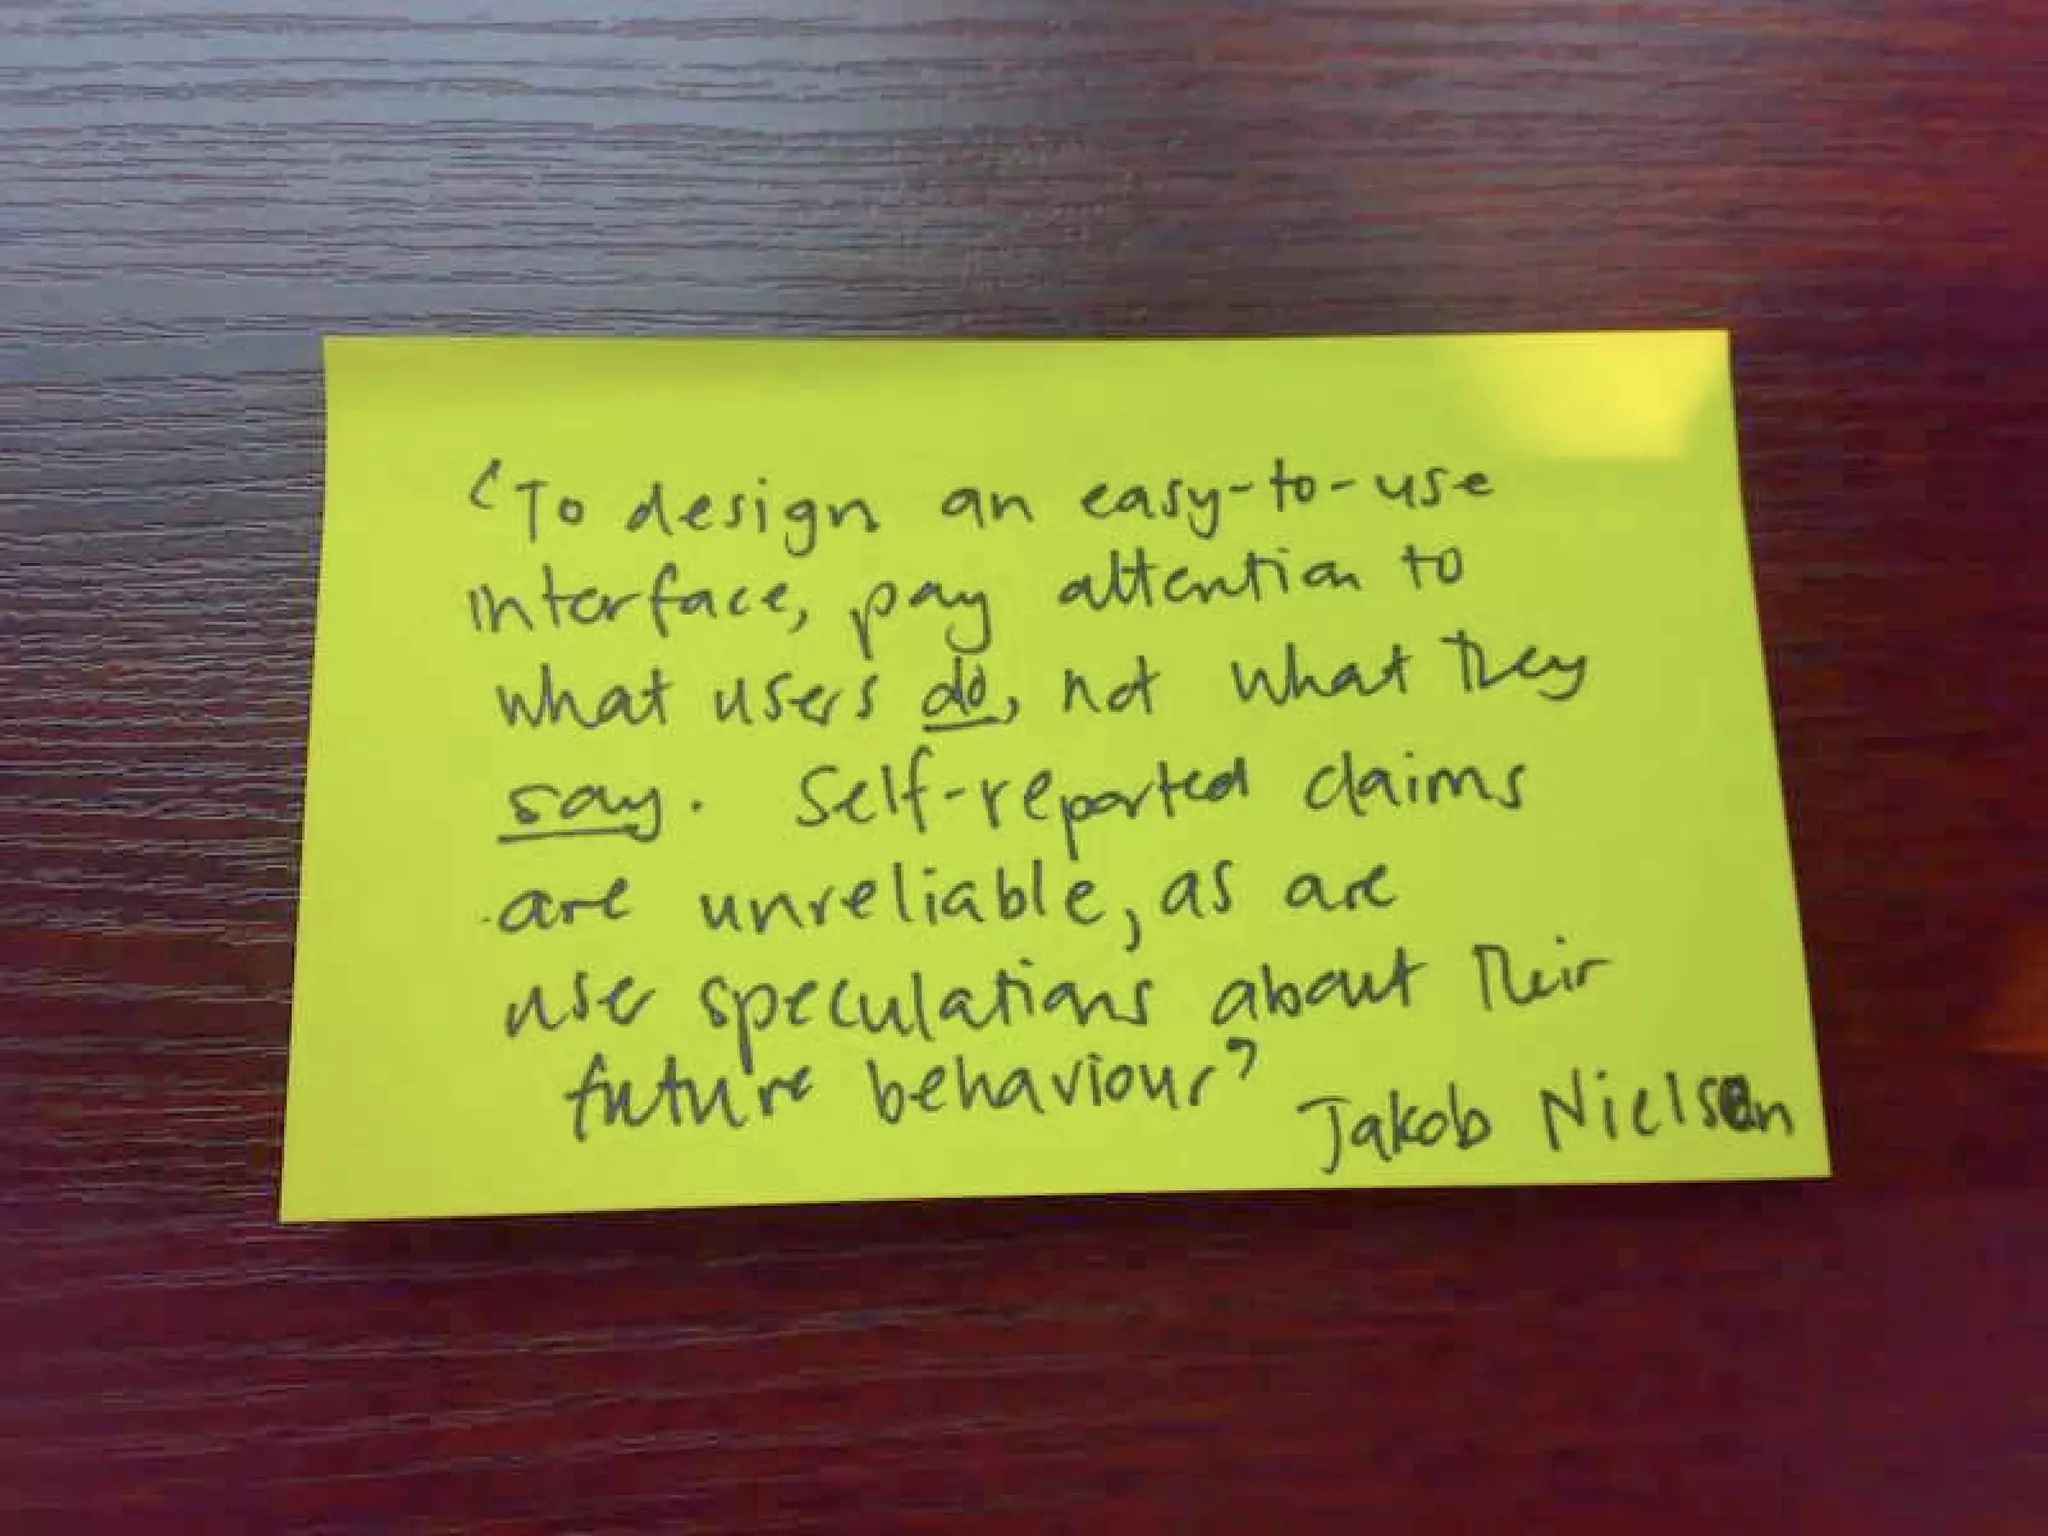 ‘To design an easy-to-use
interface, pay attention to
what users do, not what they
say. Self-reported claims
are unreliable, as are
user speculations about their
future behaviour’
Jakob Nielsen